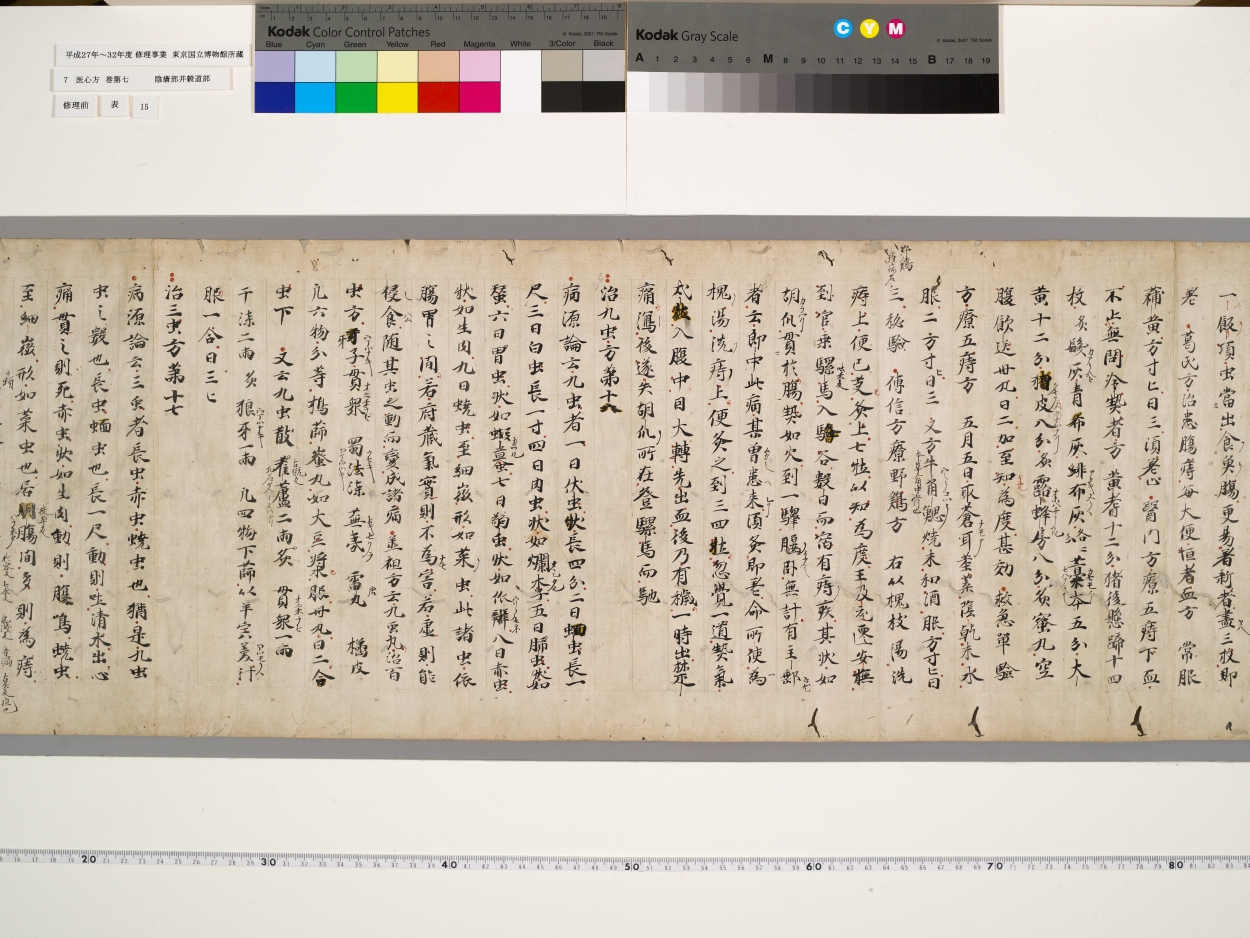 平成27年～32年度 修理事業 東京国立博物館所蔵
7 医心方 巻第七 陰瘡部并穀道部
修理前 表 15
Kodak Color Control Patches
© Kodak, 2007 TM: Kodak
Blue Cyan Green Yellow Red Magenta White 3/Color Black
Kodak Gray Scale
C Y M
© Kodak, 2007 TM: Kodak
A 1 2 3 4 5 6 M 8 9 10 11 12 13 14 15 B 17 18 19
一服頂虫當出食莫腸更易著新者盡三枚即
差 葛氏方治患腸痔每大便恒有血方 常服
蒲黄方寸匕日三須差止 醫門方療五痔下血
不止無問冷熱者方 黄耆十二分猪後懸蹄十四
枚炙髮灰青布灰緋布灰各二 藁本五分大
黄十二分猬皮八分炙露蜂房八分炙蜜丸空
腹飲送卅丸日二加至知為度甚効 救急單驗
方療五痔方 五月五日取蒼耳莖葉陰乾末水
服二方寸匕日三 又方牛角䚡燒末和酒服方寸匕日
三極驗 傳信方療野鷄方 右以槐枝湯洗
痔上便已艾灸上七壯以知為度王及充西安撫
到官乘騾馬入駱谷數日而宿有痔疾其狀如
胡瓜貫於腸熱如火到一驛僵臥無計有主郵
者云即中此病某曽患來須灸即差命所使為
槐湯洗痔上便灸之到三四壯忽覺一道熱氣
入腹中日大轉先出血後乃有穢一時出楚
痛瀉後遂失胡瓜所在登騾馬而馳
治九虫方第十六
病源論云九虫者一曰伏虫狀長四分二曰蛔虫長一
尺三曰白虫長一寸四曰肉虫狀如爛李五曰肺虫狀如
蚕六曰胃虫狀如蝦蟇七曰弱虫狀如瓜瓣八曰赤虫
狀如生肉九曰蟯虫至細嶶形如菜虫此諸虫依
腸胃之間若府蔵氣實則不為害若虛則能
侵食随其虫之動而變成諸病 虛祖方云九虫丸治百
虫方 牙子貫衆 蜀法漆 蕪荑 雷丸 橘皮
凡六物分等擣篩蜜丸如大豆漿服卅丸日二合
虫下 又云九虫散 雚蘆二兩炙 貫衆一兩
干漆二兩炙 狼牙一兩 凡四物下篩以羊宍羮汁
服一合日三匕
治三虫方第十七
病源論云三虫者長虫赤虫蟯虫也猶是九虫
虫之數也長虫蛔虫也長一尺動則吐清水出心
痛貫之則死赤虫狀如生肉動則腹鳴蟯虫
至細嶶形如菜虫也居胴腸間多則為痔
20 30 40 50 60 70 80